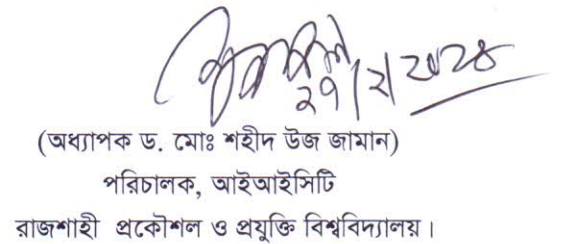 ২৭/২/২০২৪
(অধ্যাপক ড. মোঃ শহীদ উজ জামান)
পরিচালক, আইআইসিটি
রাজশাহী প্রকৌশল ও প্রযুক্তি বিশ্ববিদ্যালয়।